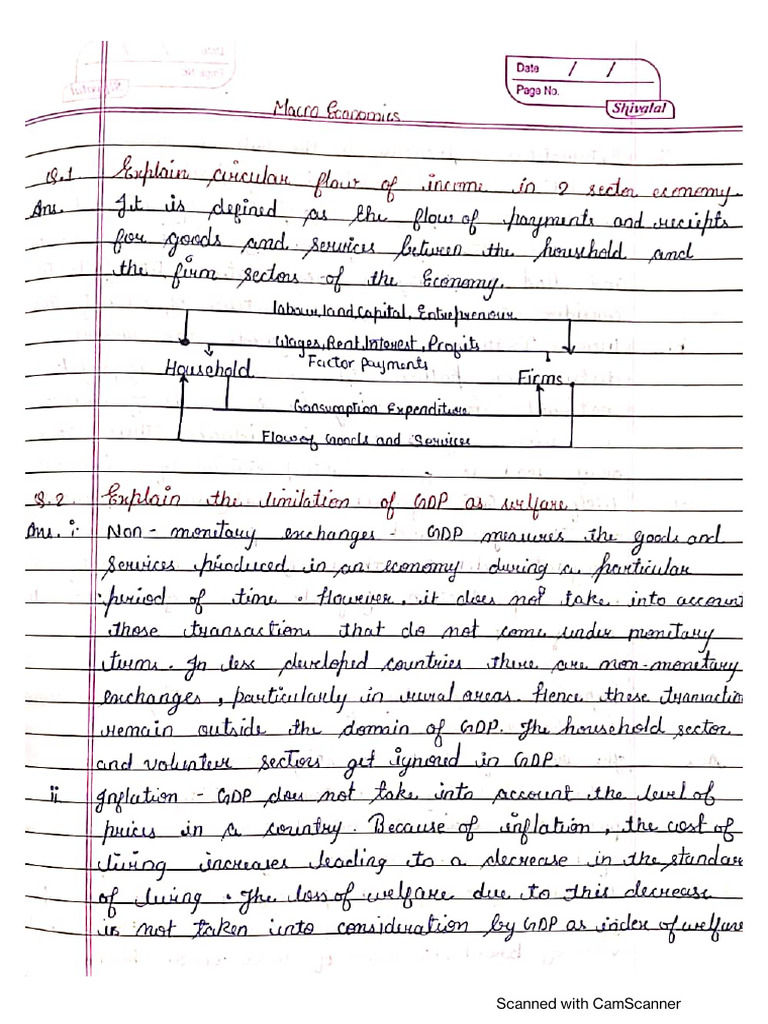 Date / /
Page No.
Shivalal
Macro Economics
Q.1 Explain circular flow of income in 2 sector economy.
Ans. It is defined as the flow of payments and reciepts
for goods and services between the household and
the firm sectors of the Economy.
Labour, land, Capital, Entrepreneur
Wages, Rent, Interest, Profits
Factor Payments
Household
Firms
Consumption Expenditure
Flow of Goods and Services
Q.2 Explain the limitation of GDP as welfare.
Ans. i. Non-monetary exchanges - GDP measures the goods and
services produced in an economy during a particular
period of time. However, it does not take into account
those transactions that do not come under monetary
terms. In less developed countries there are non-monetary
exchanges, particularly in rural areas. Hence these transaction
remain outside the domain of GDP. The household sector
and volunteer sectors get ignored in GDP.
ii Inflation - GDP does not take into account the level of
prices in a country. Because of inflation, the cost of
living increases leading to a decrease in the standar
of living. The loss of welfare due to this decrease
is not taken into consideration by GDP as index of welfare
Scanned with CamScanner